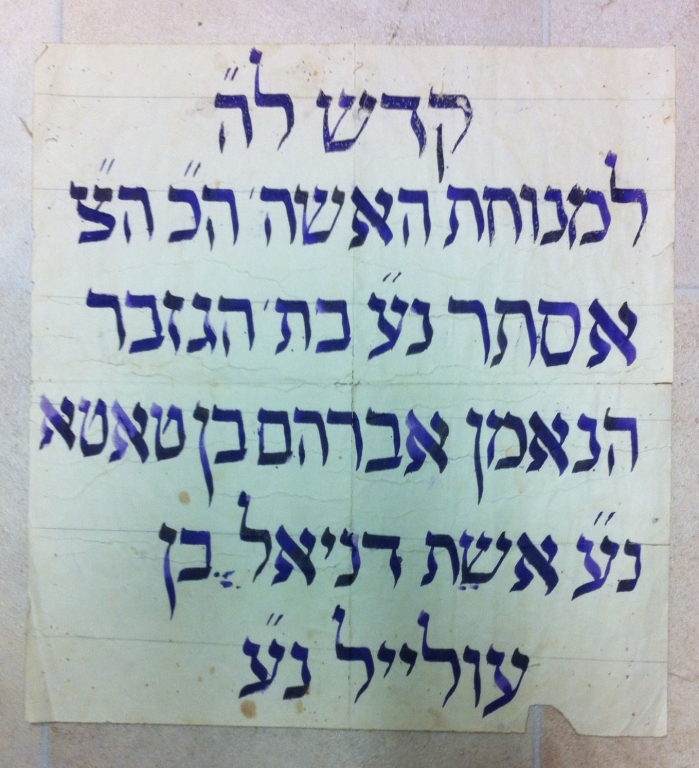 קדש לה״
למנוחת האשה׳ הכ״ הצ״
אסתר נע״ בת׳ הגזבר
הנאמן אברהם בן טאטא
נע״ אשת דניאל בן
עולייל נע״